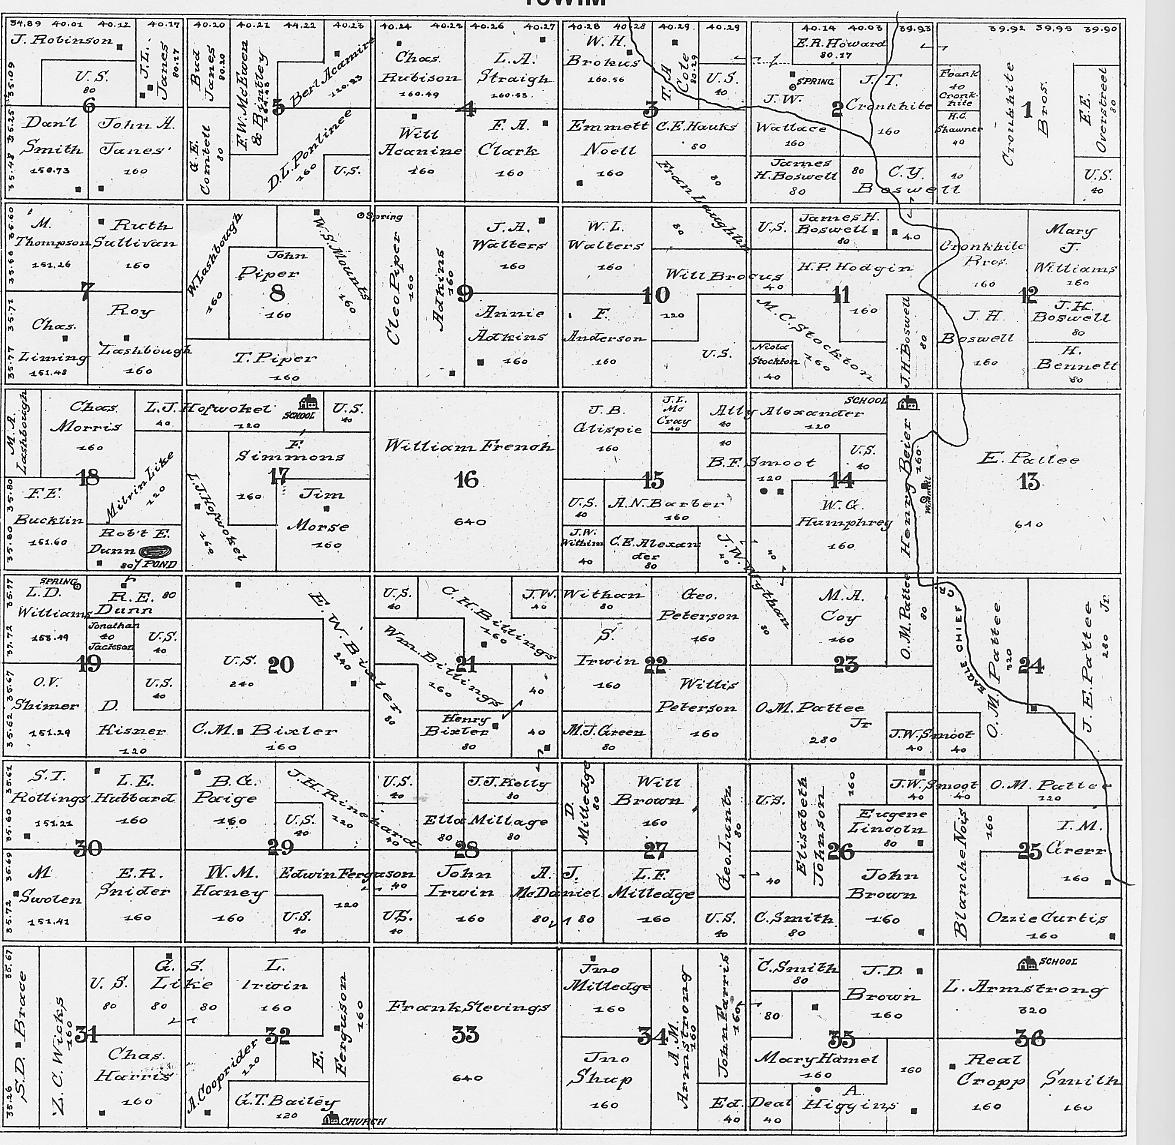 34.89 40.01 40.12 40.17 40.20 40.21 44.22 40.23 40.24 40.25 40.26 40.27 40.28 40.28 40.29 40.29 40.14 40.03 39.93 39.92 39.95 39.90
J. Robinson
U.S.
80
6
J.L. Janes
80.17
Dan'l Smith
158.73
John A. Janes
160
Bud Janes
80.20
F.W. McEwen & Bentley
Bert Acamire
120.23
5
G.E. Comtell
80
D.L. Pontinee
160
U.S.
Chas. Rubison
160.49
L.A. Straigh
160.53
4
Will Acanine
160
F.A. Clark
160
W.H. Brokus
160.56
T.A. Cole
80.29
U.S.
3
Emmett Noell
160
C.E. Hauks
80
Fran Laughlin
80
E.R. Howard
80.17
SPRING
J.W. Wallace
160
2
J.T. Cronkhite
160
James H. Boswell
80
80
C.Y. Boswell
Frank Cronkhite
40
H.C. Shawner
40
40
Cronkhite Bros.
1
E.E. Overstreet
80
U.S.
40
M. Thompson
151.26
Ruth Sullivan
160
7
Chas. Liming
151.48
Roy Lashbough
160
W. Lashbough
160
John Piper
160
8
W.S. Mounts
160
Spring
T. Piper
160
Cleo Piper
160
Adkins
160
J.A. Walters
160
9
Annie Adkins
160
W.L. Walters
160
Will Brocus
40
10
120
F. Anderson
160
U.S.
U.S.
James H. Boswell
80
40
H.P. Hodgin
160
11
M.C. Stockton
160
Nicola Stockton
40
J.H. Boswell
80
Cronkhite Bros.
160
Mary J. Williams
160
12
J.H. Boswell
160
J.H. Boswell
80
H. Bennett
80
M.A. Lashbough
Chas. Morris
160
L.J. Hofwokel
40
120
18
F.E. Bucklin
151.60
Milvin Like
120
Rob't E. Dunn
80
POND
SCHOOL
U.S.
40
F. Simmons
160
17
L.J. Hofwokel
Jim Morse
160
William French
16
640
J.B. Glispie
160
J.L. McCray
40
Ally Alexander
120
40
15
U.S.
40
A.N. Barber
160
J.W. Withim
40
C.E. Alexander
80
SCHOOL
B.F. Smoot
120
U.S.
40
14
W.G. Humphrey
160
Henry Beier
160
E. Pattee
13
640
SPRING
L.D. Williams
158.49
R.E. Dunn
80
Jonathan Jackson
40
U.S.
40
19
O.V. Shimer
151.29
U.S.
40
D. Kisner
120
E.W. Bixler
240
80
U.S.
240
20
C.M. Bixler
160
U.S.
40
C.H. Billings
160
Wm. Billings
160
21
40
Henry Bixler
80
40
J.W. Withan
40
80
Geo. Peterson
160
S. Irwin
160
22
Willis Peterson
160
M.J. Green
80
80
M.A. Coy
160
O.M. Pattee
80
23
O.M. Pattee Jr
280
J.W. Smoot
40
40
EAGLE CHIEF
O.M. Pattee
320
24
J.E. Pattee Jr.
280
S.T. Rollings
151.21
L.E. Hubbard
160
30
M. Swolen
151.41
E.R. Snider
160
B.G. Paige
160
J.H. Rinehard
120
40
U.S.
40
29
W.M. Haney
160
Edwin Ferguson
120
40
U.S.
40
U.S.
40
J.J. Kelly
80
Ella Millage
80
80
28
John Irwin
160
U.S.
40
A.J. McDaniel
80
80
D. Milledge
80
Will Brown
160
27
L.F. Milledge
160
Geo. Luntz
80
U.S.
40
U.S.
40
Elisabeth Johnson
160
J.W. Smoot
40
40
Eugene Lincoln
80
26
John Brown
160
C. Smith
80
O.M. Pattee
120
Blanche Nois
160
25
I.M. Grerr
160
Ozzie Curtis
160
S.D. Brace
Z.C. Wicks
160
U.S.
80
G.S. Like
80
80
31
Chas. Harris
160
L. Irwin
160
32
A. Cooprider
120
E. Ferguson
160
G.T. Bailey
120
CHURCH
Frank Stevings
33
640
Jno Milledge
160
34
Jno Shup
160
A.M. Armstrong
160
John Farris
160
Ed. Deal
40
40
C. Smith
80
80
J.D. Brown
160
35
Mary Hamel
160
160
A. Higgins
SCHOOL
L. Armstrong
320
36
Real Cropp
160
Smith
160